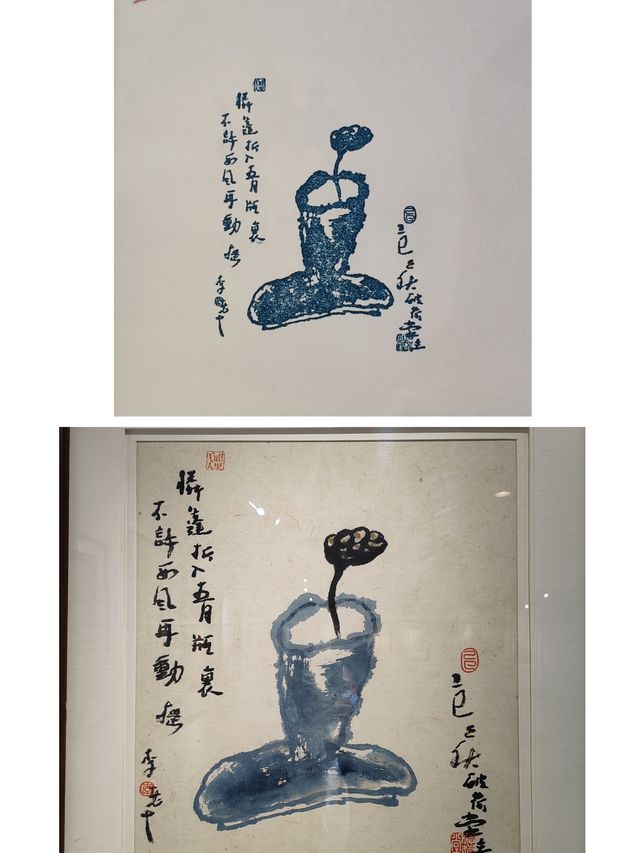 憐蓬折入青瓶裏
不許西風再動搖
李老十
己巳之秋破荷堂主
憐蓬折入青瓶裏
不許西風再動搖
李老十
己巳之秋破荷堂主